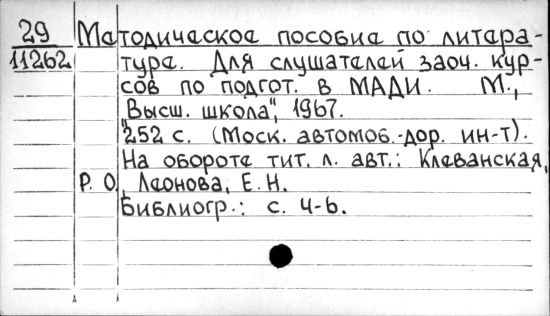 29
11262
Методическое пособие по литера-
туре. Для слушателей заоч. кур-
сов по подгот. в МАДИ. М.,
"Высш. школа", 1967.
252 с. (Моск. автомоб.-дор. ин-т).
На обороте тит. л. авт.: Клеванская,
Р. О., Леонова, Е. Н.
Библиогр.: с. 4-6.